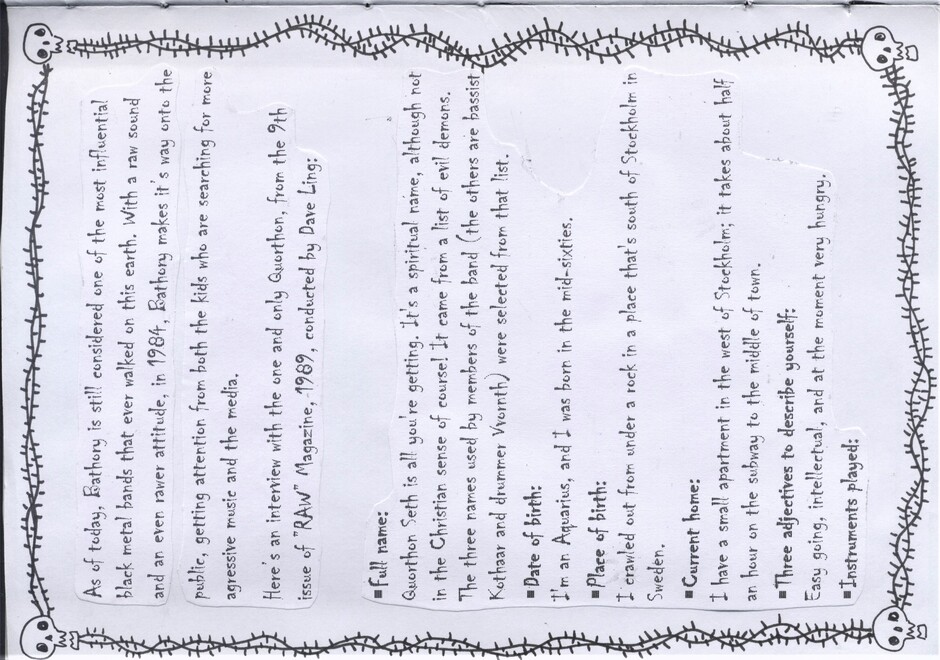 As of today, Bathory is still considered one of the most influential
black metal bands that ever walked on this earth. With a raw sound
and an even rawer attitude, in 1984, Bathory makes it's way onto the
public, getting attention from both the kids who are searching for more
agressive music and the media.
Here's an interview with the one and only Quorthon, from the 9th
issue of "RAW" Magazine, 1989, conducted by Dave Ling:
▪Full name:
Quorthon Seth is all you're getting. It's a spiritual name, although not
in the Christian sense of course! It came from a list of evil demons.
The three names used by members of the band (the others are bassist
Kothaar and drummer Vvornth) were selected from that list.
▪Date of birth:
I'm an Aquarius, and I was born in the mid-sixties.
▪Place of birth:
I crawled out from under a rock in a place that's south of Stockholm in
Sweden.
▪Current home:
I have a small apartment in the west of Stockholm; it takes about half
an hour on the subway to the middle of town.
▪Three adjectives to describe yourself:
Easy going, intellectual, and at the moment very hungry.
▪Instruments played: